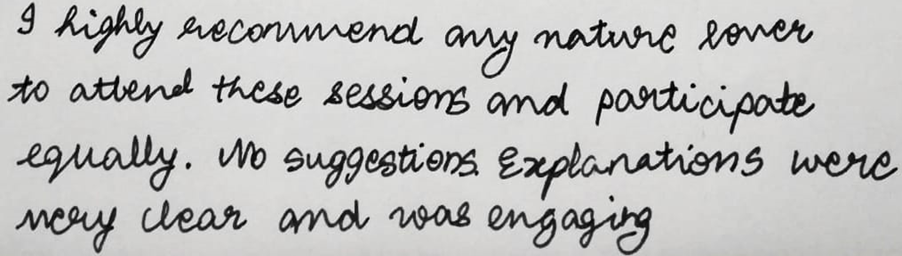 I highly recommend any nature lover
to attend these sessions and participate
equally. No suggestions. Explanations were
very clear and was engaging